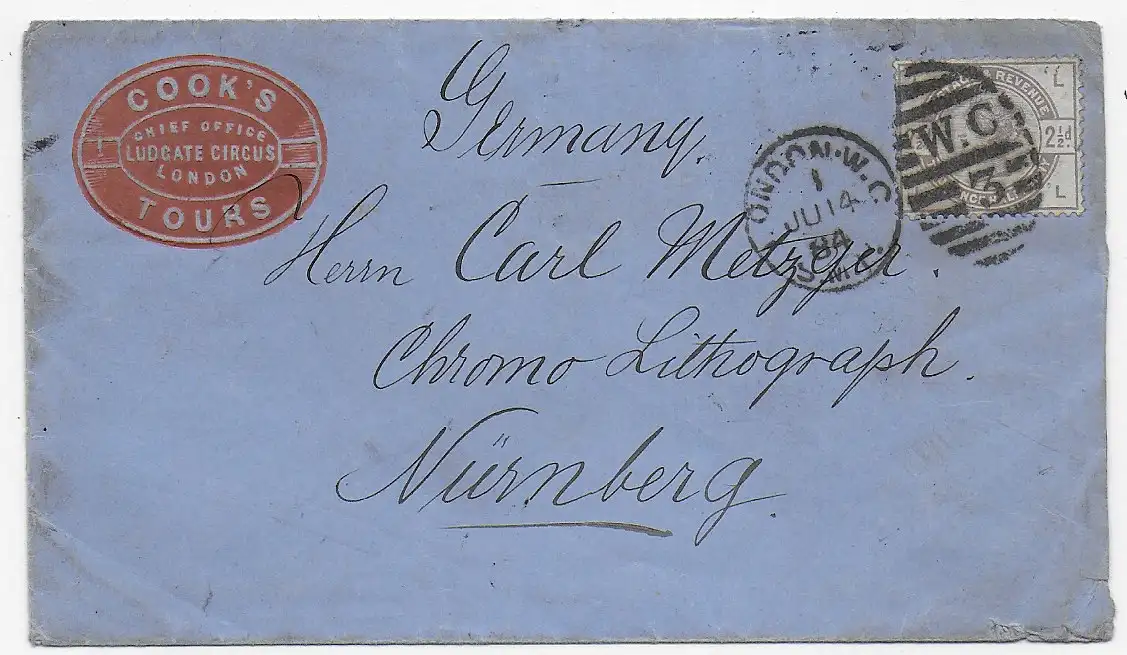 COOK'S
CHIEF OFFICE
LUDGATE CIRCUS
LONDON
TOURS
Germany.
Herrn Carl Metzger.
Chromo Lithograph.
Nürnberg.
LONDON·W.C
1
JU 14
84
S.M.P.
W.C
3
REVENUE
2½d.
L
L